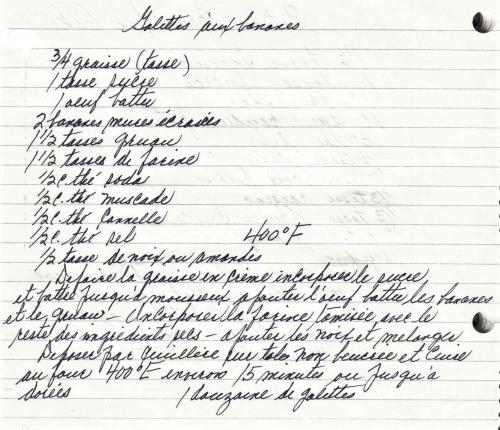 Galettes aux bananes
3/4 graisse (tasse)
1 tasse sucre
1 oeuf battu
2 bananes mures écrasées
1 1/2 tasses gruau
1 1/2 tasses de farine
1/2 c. thé soda
1/2 c. thé muscade
1/2 c. thé cannelle
1/2 c. thé sel 400°F
1/2 tasse de noix ou amandes
Defaire la graisse en crème incorporer le sucre
et battre jusqu'à mousseux ajouter l'oeuf battu les bananes
et le gruau - Incorporer la farine tamisée avec le
reste des ingrédients secs - ajouter les noix et mélanger
Deposer par cuillère sur tole non beurrée et cuire
au four 400°F environ 15 minutes ou jusqu'à
dorées 1 douzaine de galettes